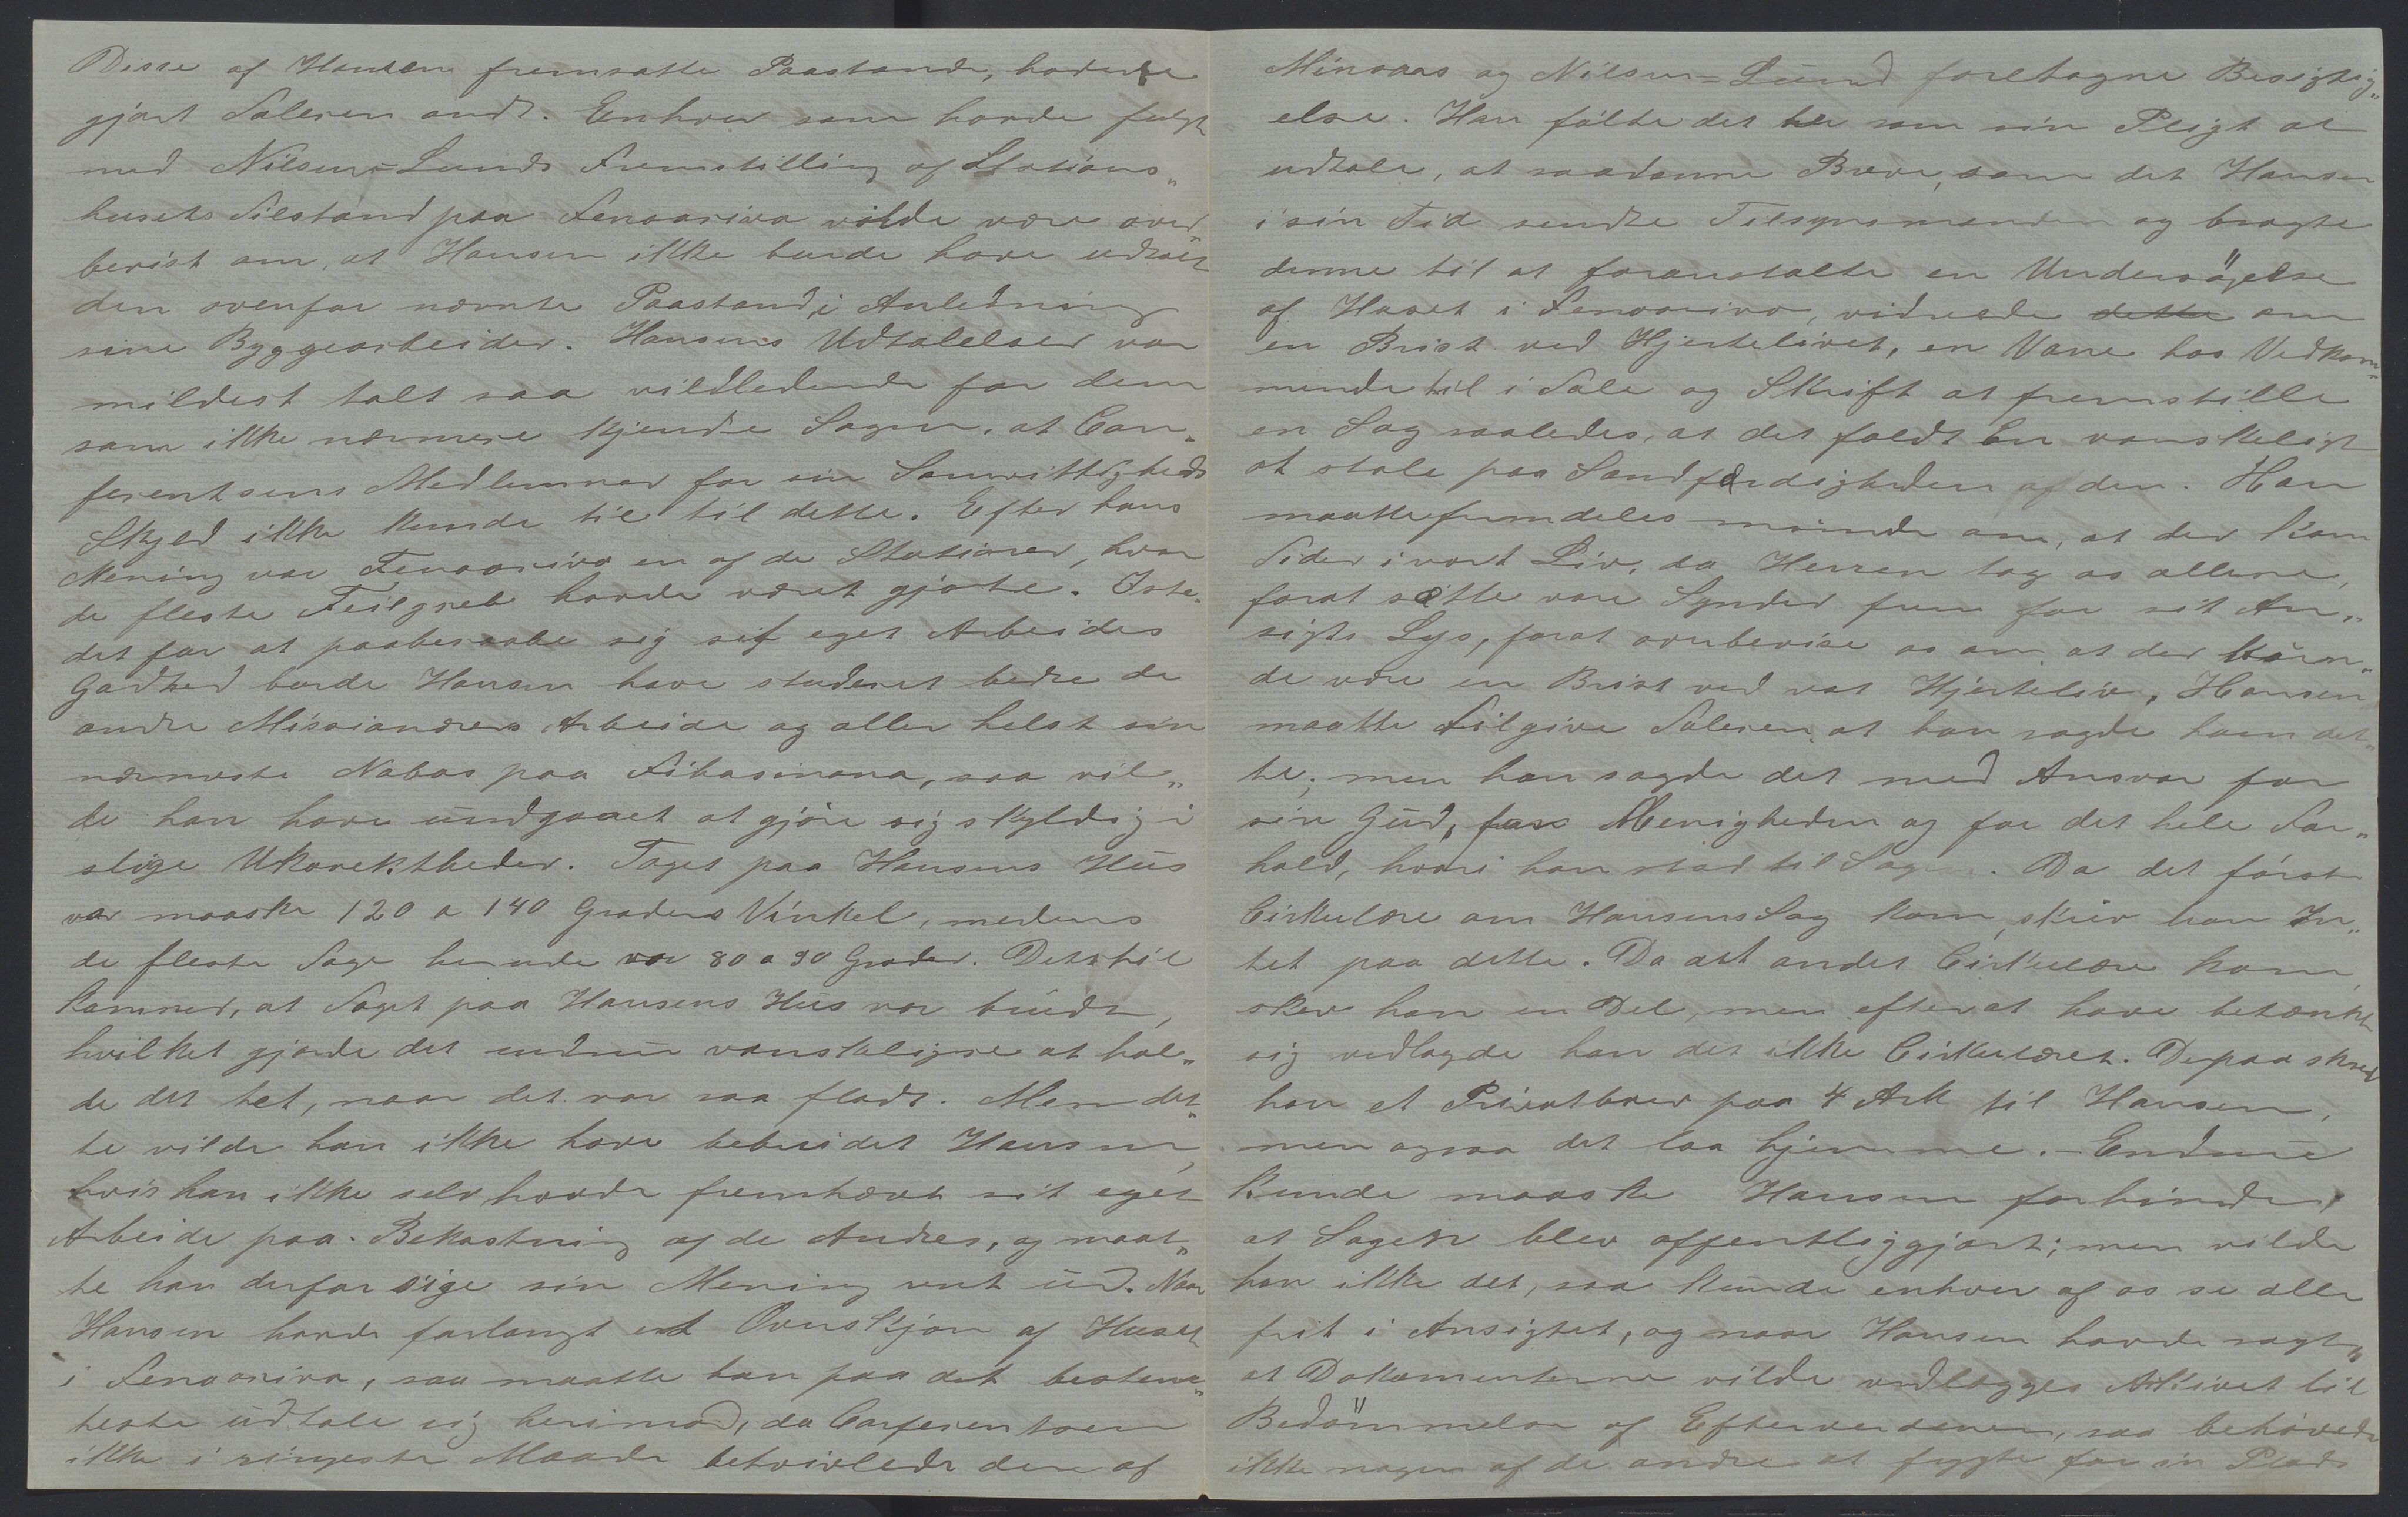 Disse af Hansen fremsatte Paastande, havde
gjort Taleren ondt. Enhver som havde fulgt
med Nilsen-Lunds Fremstilling af Stations„
husets Tilstand paa Fenoarivo vilde være over„
bevist om, at Hansen ikke burde have udtalt
den ovenfor nævnte Paastand i Anledning
sine Byggearbeider. Hansens Udtalelser var
mildest talt saa vildledende for dem
som ikke nærmere kjendte Sagen, at Con„
ferentsens Medlemmer for sin Samvittigheds
Skyld ikke kunde tie til dette. Efter hans
Mening var Fenoarivo en af de Stationer, hvor
de fleste Feilgreb havde været gjorte. Iste„
det for at paaberaabe sig sit eget Arbeides
Godhed burde Hansen have studeret bedre de
andre Missionærers Arbeide og aller helst sin
nærmeste Nabos paa Sihasinana, saa vil„
de han have undgaaet at gjöre sig skyldig i
slige Ukorektheder. Taget paa Hansens Hus
var maaske 120 a 140 Graders Vinkel, medens
de fleste Tage herude var 80 a 90 Grader. Dertil
kommer, at Taget paa Hansens Hus var buede,
hvilket gjorde det endnu vanskeligere at hol„
de det tet, naar det var saa fladt. Men det„
te vilde han ikke have bebreidet Hansen,
hvis han ikke selv havde fremhævet sit eget
Arbeide paa Bekostning af de Andres, og maat„
te han derfor sige sin Mening rent ud. Naar
Hansen havde forlangt et Overskjön af Huset
i Fenoarivo, saa maatte han paa det bestem„
teste udtale sig herimod, da Conferentsen
ikke i ringeste Maade betvivlede den af
Minsaas og Nilsen-Lund foretagne Besigtig„
else. Han fölte det her som sin Pligt at
udtale, at saadanne Breve, som det Hansen
i sin Tid sendte Tilsynsmanden og bragte
denne til at foranstalte en Undersögelse
af Huset i Fenoarivo, vidnede dette om
en Brist ved Hjertelivet, en Vane hos Vedkom„
mende til i Tale og Skrift at fremstille
en Sag saaledes, at det faldt En vanskeligt
at stole paa Sandfærdigheden af den. Han
maatte fremdeles minde om, at der kom
Tider i vort Liv, da Herren tog os allene,
forat sætte vore Synder frem for sit An„
sigts Lys, forat overbevise os om at der kun„
de være en Brist ved vort Hjerteliv. Hansen
maatte tilgive Taleren at han sagde ham det„
te; men han sagde det med Ansvar for
sin Gud, for Menigheden og for det hele For„
hold, hvori han stod til Sagen. Da det förste
Cirkulære om Hansens Sag kom, skrev han In„
tet paa dette. Da det andet Cirkulære kom,
skrev han en Del, men efterat have betænkt
sig vedlagde han det ikke Cirkulæret. Derpaa skrev
han et Privatbrev paa 4 Ark til Hansen,
men ogsaa det laa hjemme. - Endnu
kunde maaske Hansen forhindre,
at Sagen blev offentliggjort; men vilde
han ikke det, saa kunde enhver af os se alle
frit i Ansigtet, og naar Hansen havde sagt,
at Dokumenterne vilde vedlægges Arkivet til
Bedömmelse af Efterverdenen, saa behövede
ikke nogen af de andre at frygte for sin Plads